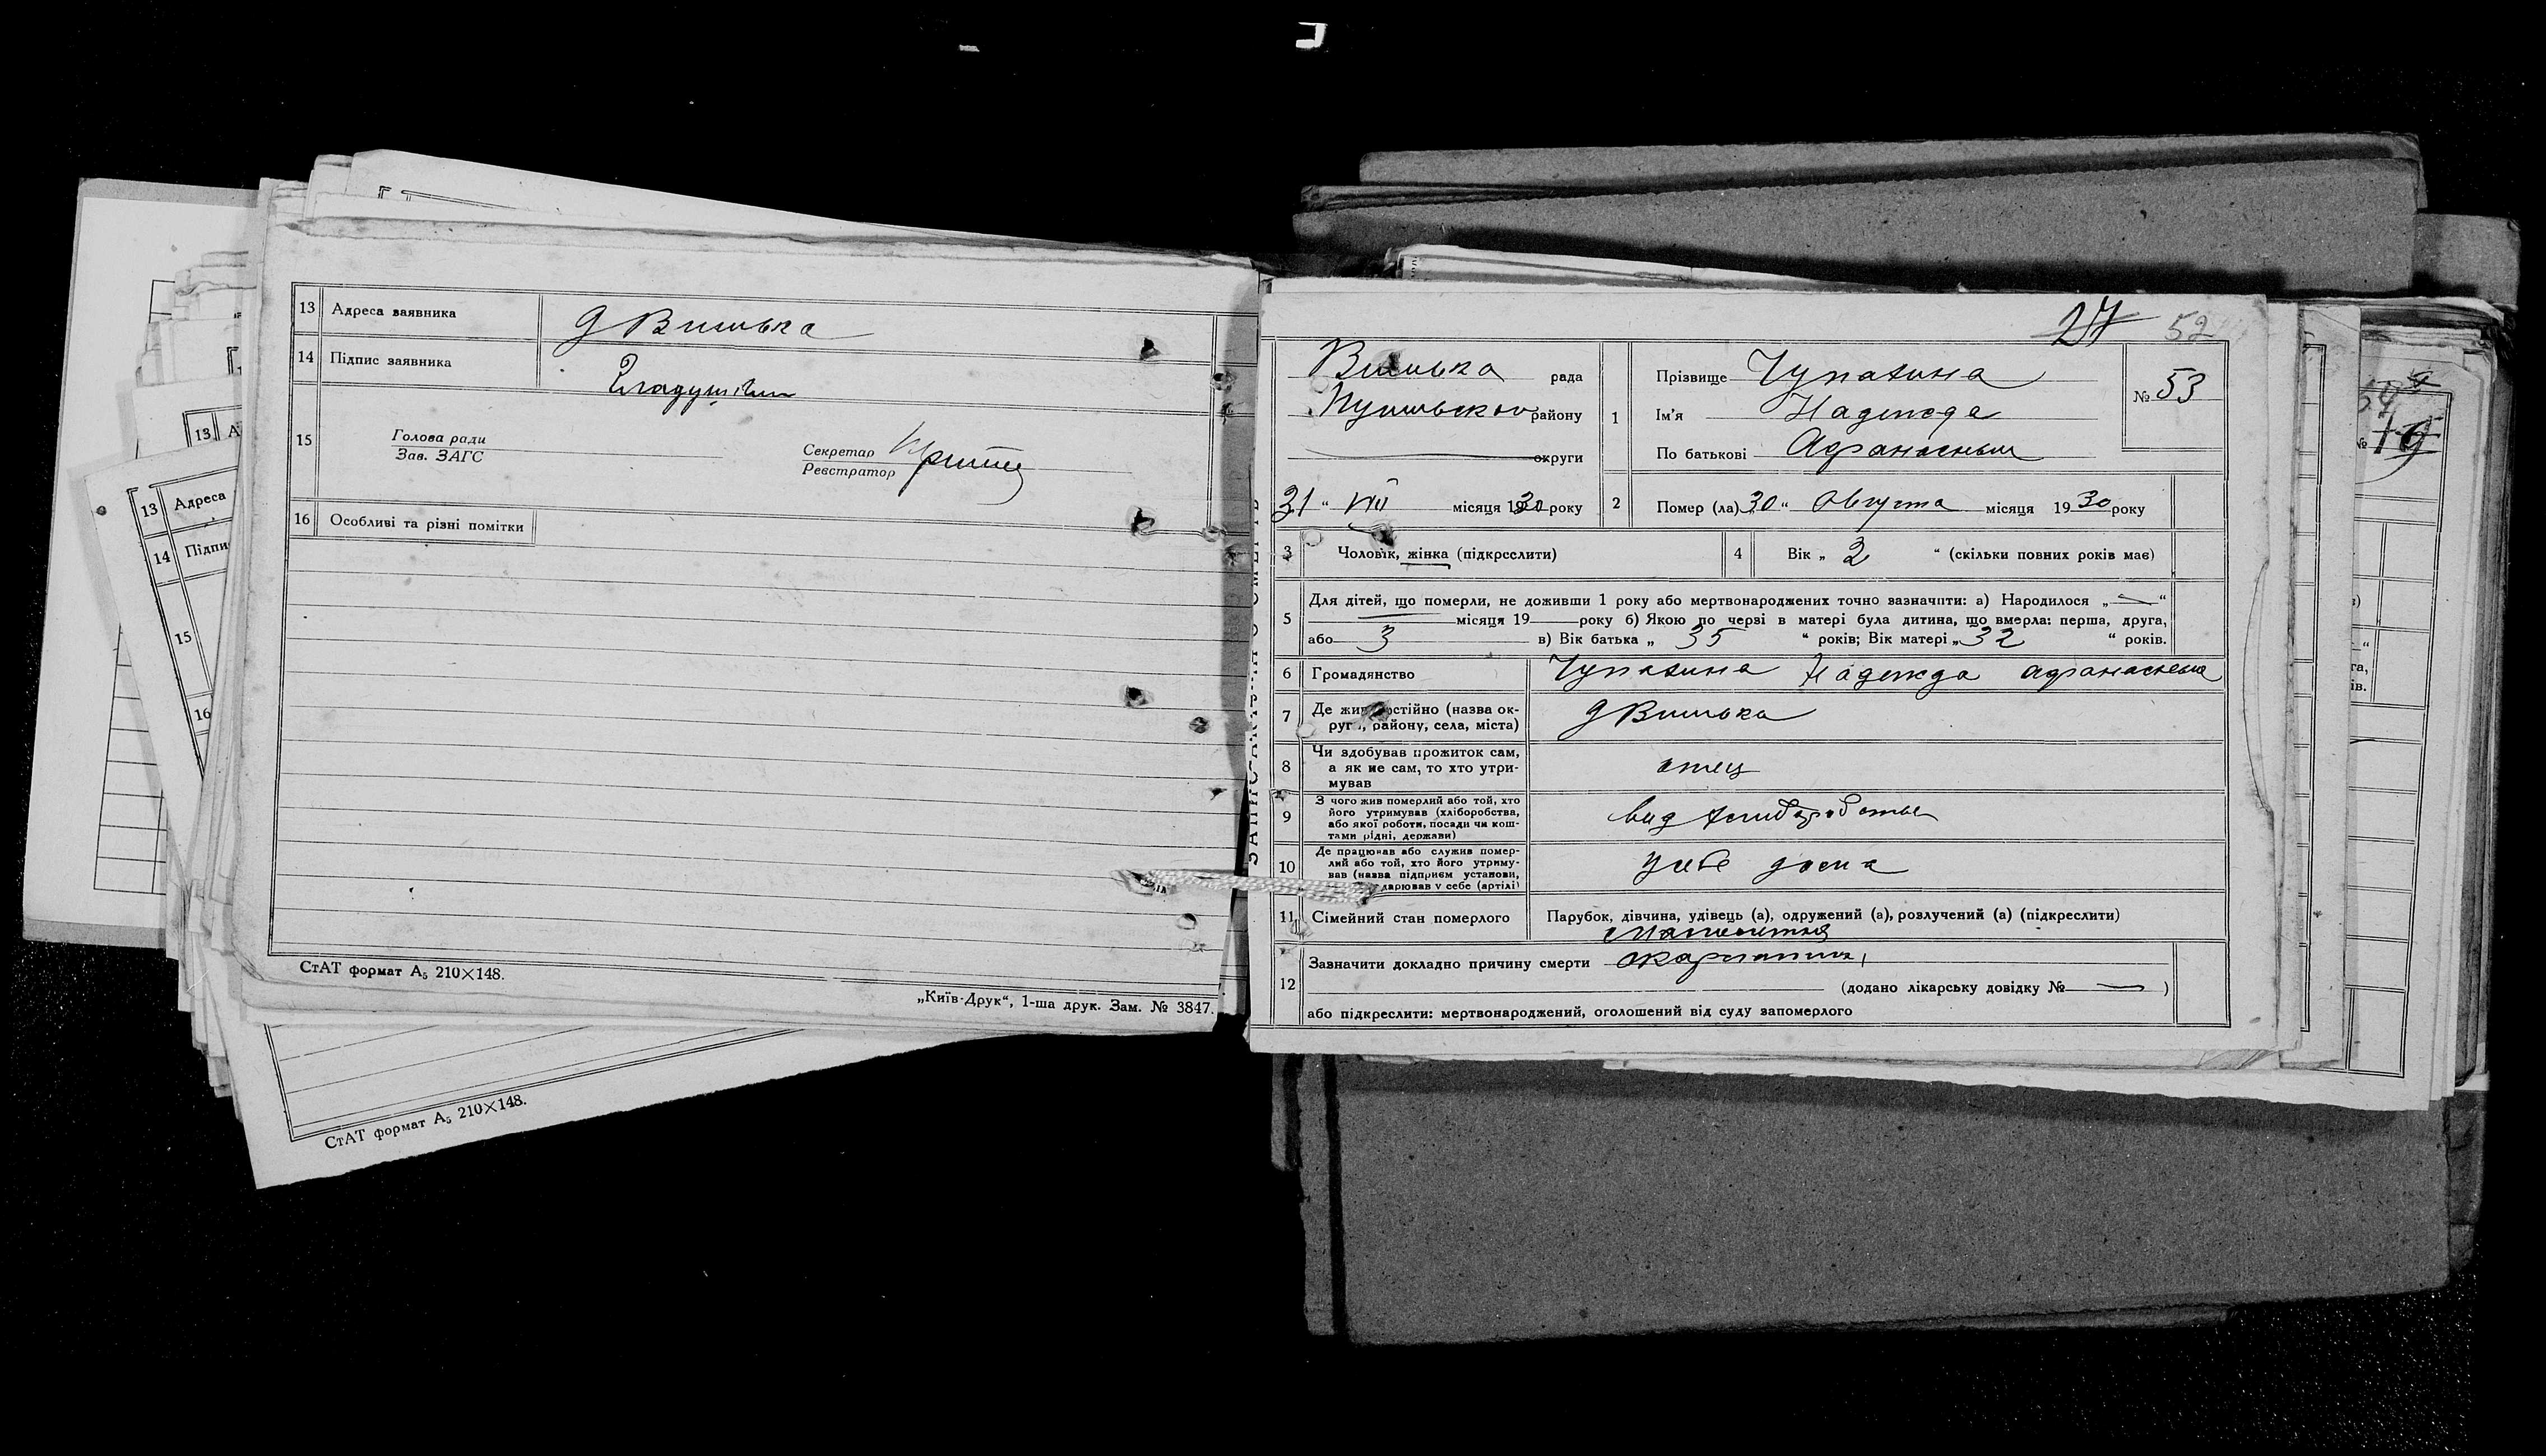 13 Адреса заявника д Вишька
14 Підпис заявника
15 Голова ради
Зав. ЗАГС
Секретар
Реєстратор
16 Особливі та різні помітки
СтАТ формат А₅ 210×148.
„Київ-Друк“, 1-ша друк. Зам. № 3847.
13 Адреса
14
15
16
13 А
СтАТ формат А₅ 210×148.
27 52
Вишька рада
району
округи
31 “ VIII місяця 1930 року
1 Прізвище Чупахина
Ім'я Надежда
По батькові Афанасньи
№ 53
2 Помер (ла) „30“ Августа місяця 1930 року
3 Чоловік, жінка (підкреслити)
4 Вік „ 2 “ (скільки повних років має)
5 Для дітей, що померли, не доживши 1 року або мертвонароджених точно зазначити: а) Народилося „—“
місяця 19 року б) Якою по черзі в матері була дитина, що вмерла: перша, друга,
або 3 в) Вік батька „ 35 “ років; Вік матері „ 32 “ років.
6 Громадянство Чупахина Надежда
7 Де живе постійно (назва ок-
руги, району, села, міста) д Вишька
8 Чи здобував прожиток сам,
а як не сам, то хто утри-
мував отец
9 З чого жив померлий або той, хто
його утримував (хліборобства,
або якої роботи, посади чи кош-
тами рідні, держави)
10 Де працював або служив помер-
лий або той, хто його утриму-
вав (назва підприєм установи,
дарював у себе (артілі)
дома
11 Сімейний стан померлого Парубок, дівчина, удівець (а), одружений (а), розлучений (а) (підкреслити)
12 Зазначити докладно причину смерти скарлатина
(додано лікарську довідку № — )
або підкреслити: мертвонароджений, оголошений від суду запомерлого